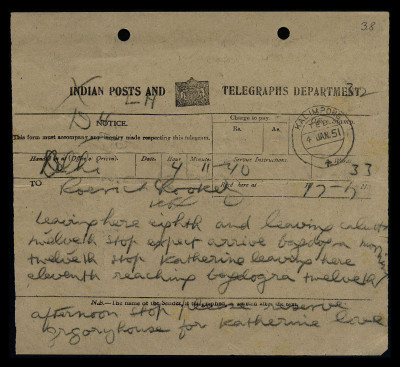 38
INDIAN POSTS AND TELEGRAPHS DEPARTMENT
X LH
NOTICE.
Charge to pay.
KALIMPONG
4 JAN. 51
This form must accompany any inquiry made respecting this telegram.
Rs. As.
Handed in at (Office of Origin). Date. Hour. Minute. Service Instructions. Words.
Delhi 4 11-40 33
TO Roerich Crookety
here at 17-
Leaving here eighth and leaving calcutta
twelveth stop expect arrive bagdogra morning
twelveth stop Katherine leaving here
eleventh reaching bagdogra twelveth
N.B.—The name of the Sender, if
afternoon stop please reserve
house for Katherine love